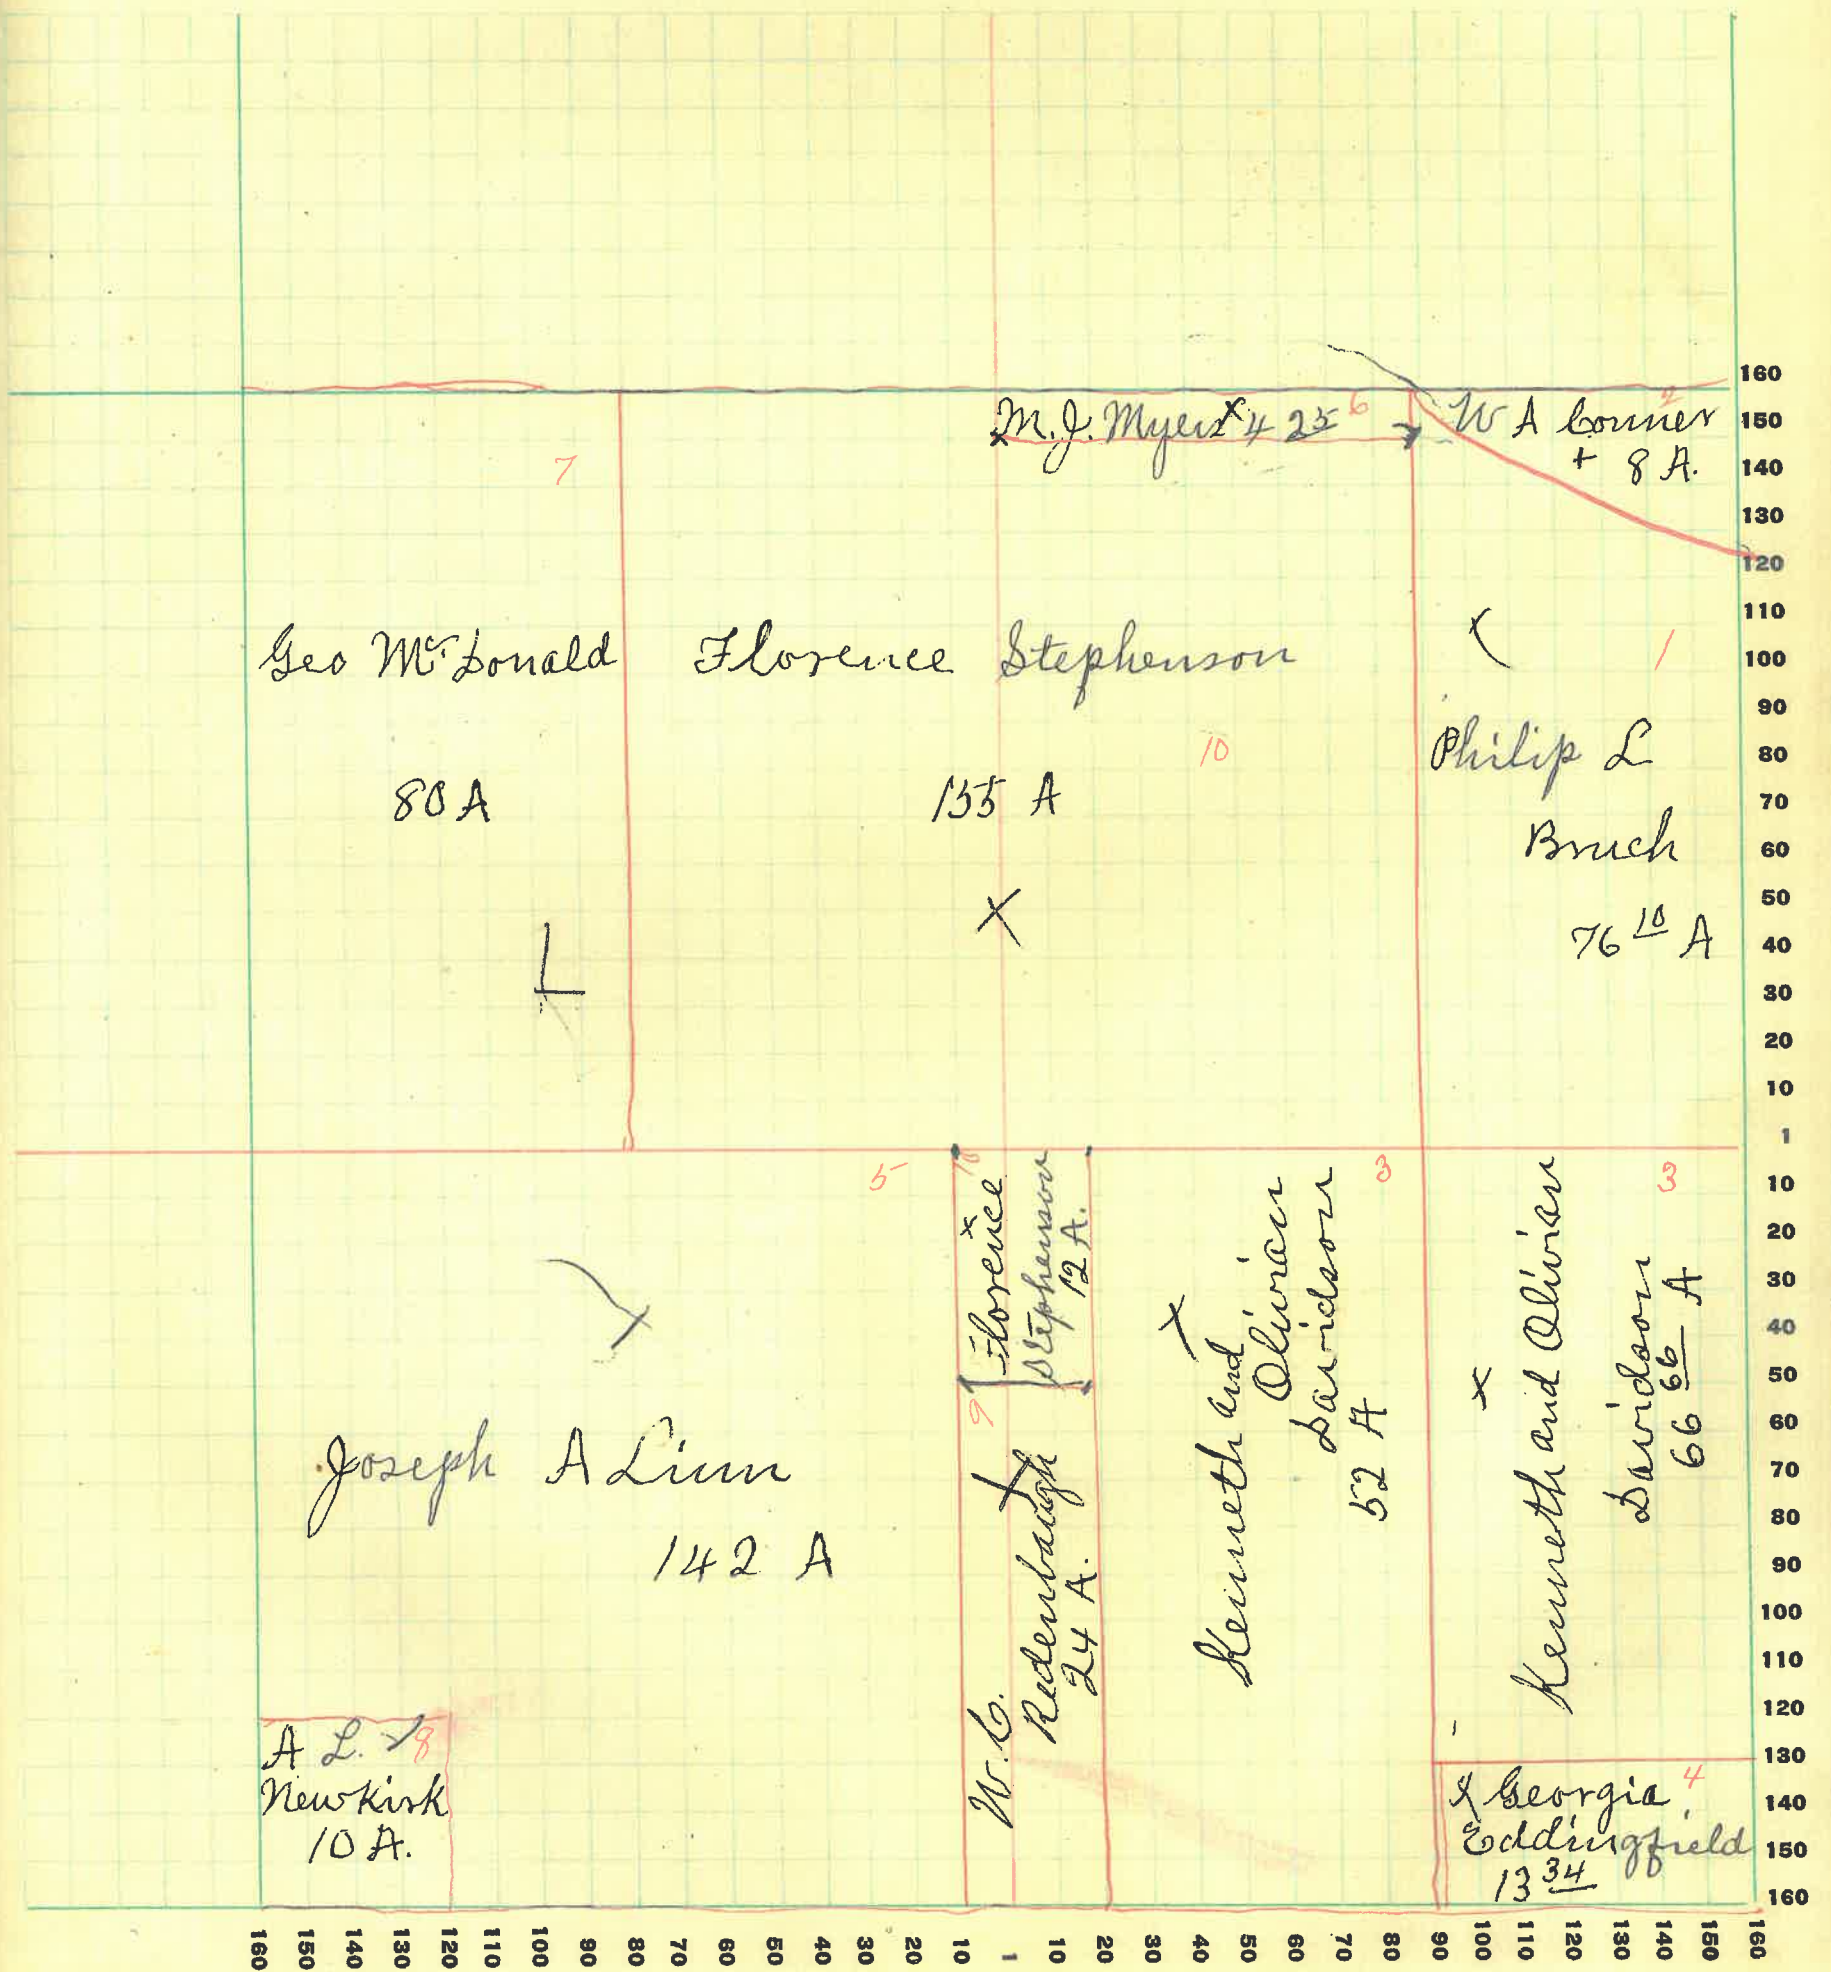 160
150
140
130
120
110
100
90
80
70
60
50
40
30
20
10
1
10
20
30
40
50
60
70
80
90
100
110
120
130
140
150
160
M. J. Myers x 4 25 6
W A Conner 2
+ 8 A.
7
Geo McDonald
80 A
Florence Stephenson
10
155 A
X
1
Philip L
Bruch
76 10 A
5
Joseph A Linn
142 A
A L. 8
Newkirk
10 A.
10
x
Florence
Stephenson
12 A.
9
W. C.
Redenbaugh
24 A.
3
x
Kenneth and
Olivian
Davidson
52 A
3
x
Kenneth and Olivian
Davidson
66 66 A
x Georgia 4
Eddingfield
13 34
160 150 140 130 120 110 100 90 80 70 60 50 40 30 20 10 1 10 20 30 40 50 60 70 80 90 100 110 120 130 140 150 160